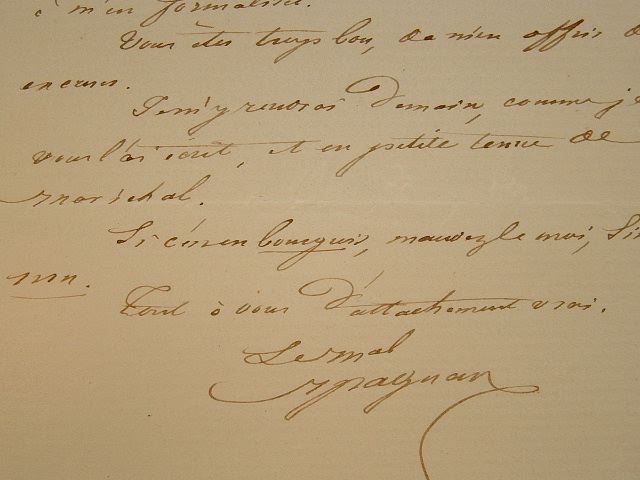 à m'en formaliser.
Vous êtes trop bon, de m'en offrir de
excuses.
J'm'y rendrai Demain, comme je
vous l'ai écrit, et en petite tenue de
Maréchal.
Si c'est en bourgeois, mandez le moi, Si
non.
Tout à vous D'attachement vrai.
Le Mal
Magnan